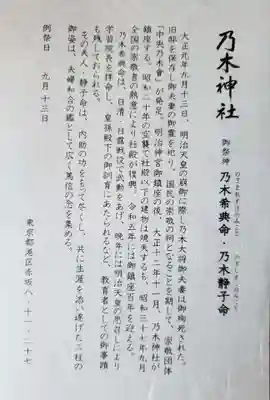 乃木神社
御祭神 乃木希典命・乃木静子命
大正元年九月十三日、明治天皇の崩御に際し乃木大将御夫妻は御殉死された。
旧邸を保存し御夫妻の御霊を祀り、国民の崇敬の祠となることを期して、崇敬団体
「中央乃木會」が発足。明治神宮御鎮座の後、大正十二年十一月、乃木神社が
鎮座する。昭和二十年の空襲で社殿以下の建物は焼失するも 昭和三十七年九月
全国の崇敬者の熱意により社殿が復興。令和五年には御鎮座百年を迎える。
乃木希典命は、日清、日露戦役で武勲をあげ、晩年には明治天皇の思召により
学習院長を拝命し、皇孫殿下の御訓育にあたられるなど、教育者としての御事蹟
も残しておられる。
その夫人・静子命は、内助の功をもって尽くし、共に生涯を添い遂げた二柱の
御姿は、夫婦和合の鑑として広く篤信の念を集める。
例祭日 九月十三日
東京都港区赤坂八-十一-二十七